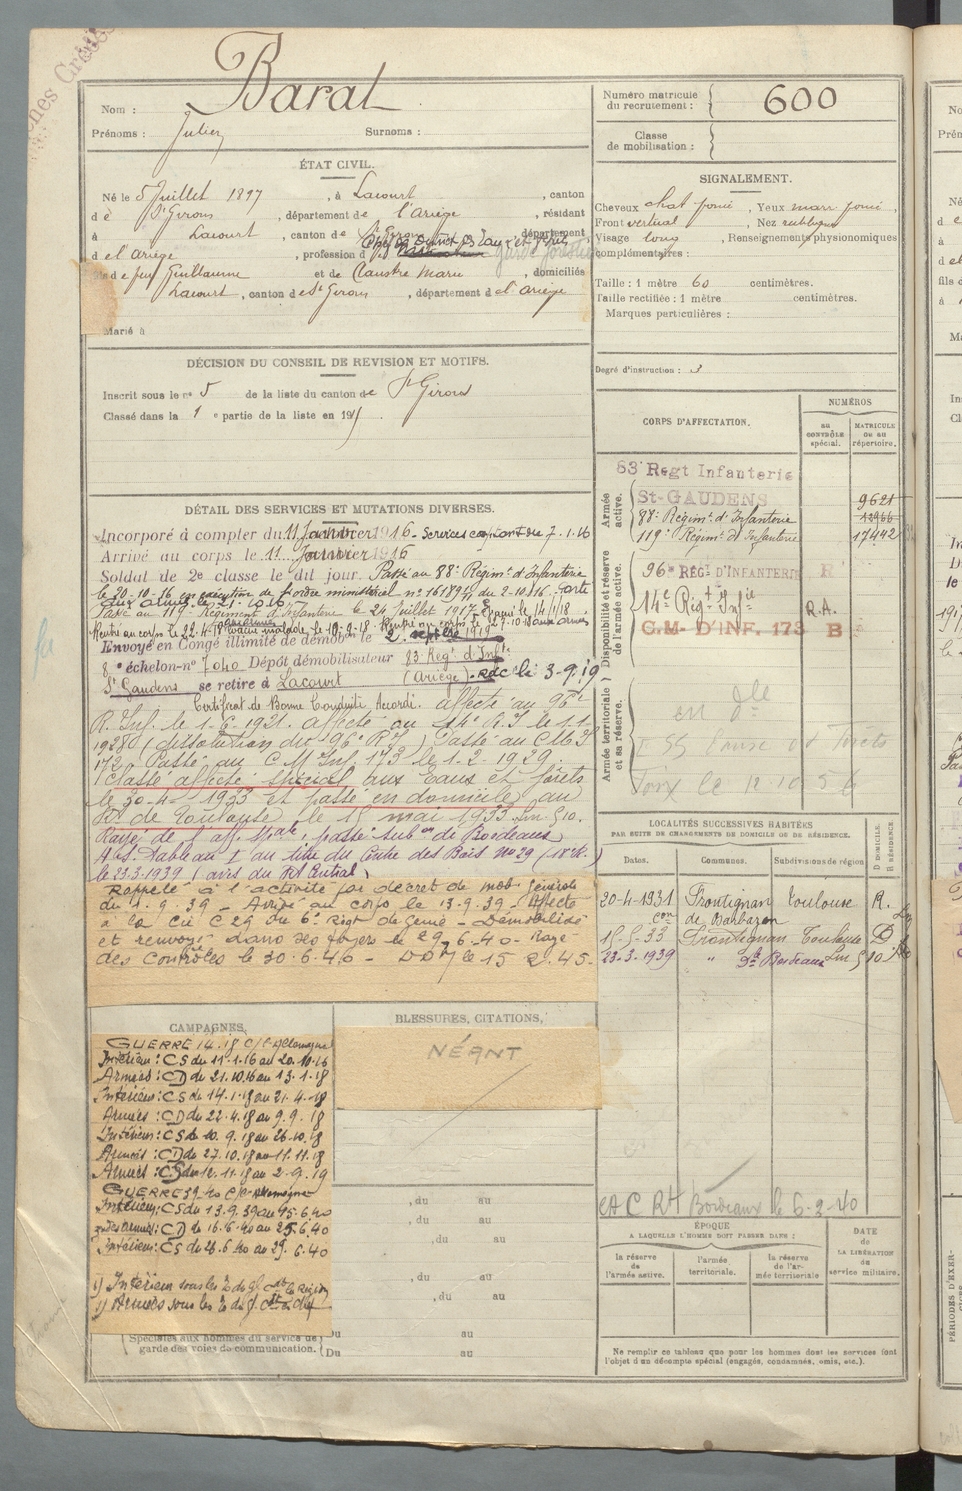 Barat
Nom :
Prénoms : Julien Surnoms :
Numéro matricule du recrutement : 600
Classe de mobilisation :
ÉTAT CIVIL.
Né le 5 Juillet 1897, à Lacourt, canton
de St Girons, département de l'Ariège, résidant
à Lacourt, canton de St Girons, département
d el ariège, profession d
fils de feu Guillaume et de Claustre Marie, domiciliés
Lacourt, canton de St Girons, département d el ariège
Marié à
SIGNALEMENT.
Cheveux chat foncé, Yeux marr foncé,
Front vertical, Nez
Visage long, Renseignements physionomiques
complémentaires :
Taille : 1 mètre 60 centimètres.
Taille rectifiée : 1 mètre centimètres.
Marques particulières :
Degré d'instruction : 3
DÉCISION DU CONSEIL DE REVISION ET MOTIFS.
Inscrit sous le no 5 de la liste du canton de St Girons
Classé dans la 1 e partie de la liste en 191
DÉTAIL DES SERVICES ET MUTATIONS DIVERSES.
Incorporé à compter du 11 Janvier 1916 - Services comptant du 7.1.16
Arrivé au corps le 11 Janvier 1916
Soldat de 2e classe le dit jour. Passé au 88e Régimt d'Infanterie
le 20-10-16 en exécution de l'ordre ministériel no 16189 du 2-10-16. Parti
aux armées le 21-10-16
Passé au 119e Régiment d'Infanterie le 24 Juillet 1917. Evacué le 14/1/18
Rentré au corps le 22-4-18 Evacué malade le 10-9-18. Rentré au corps le 27-10-18 aux armées
Envoyé en Congé illimité de démobon le 2 septbre 1919
8 e échelon-no 7040 Dépôt démobilisateur 83 Regt d'Infie
St Gaudens se retire à Lacourt (Ariège). RDC le 3-9-19
Certificat de Bonne Conduite Accordé. affecté au 96e
R. Inf. le 1-6-1921. affecté au 14e R.I le 1.1
1928 (dissolution du 96e R.I.) Passé au CMI
172. Passé au C M Inf. 173 le 1-2-1929.
Classé affecté spécial aux Eaux et forêts
le 30-4-1933 et passé en domicile au
Rt de Toulouse le 15 mai 1933
Rayé de l'aff. spale, passé subon de Bordeaux
Aff. Tableau 1 au titre du Centre des Bois No 29 (18e R.)
le 23.3.1939 (avis du Rt Central)
Rappelé à l'activité par décret de mob. Générale
du 1.9.39 - Arrivé au corps le 13.9.39 - Affecté
à la Cie C 29 du 6e Régt de Génie - Démobilisé
et renvoyé dans ses foyers le 29.6.40 - Rayé
des Contrôles le 30.6.40 - DDM le 15 2.45.
CORPS D'AFFECTATION.
NUMÉROS
AU CONTRÔLE spécial.
MATRICULE OU AU répertoire.
Armée active.
83e Regt Infanterie
St-GAUDENS 9621
88e Régimt d'Infanterie 11966
119e Régimt d'Infanterie 17442
Disponibilité et réserve de l'armée active.
96e RÉGt D'INFANTERIE R
14e Rigt Infie R.A.
C.M- D'INF. 173 B
Armée territoriale et sa réserve.
Foix le 12.10.54
LOCALITÉS SUCCESSIVES HABITÉES
PAR SUITE DE CHANGEMENTS DE DOMICILE OU DE RÉSIDENCE.
Dates. Communes. Subdivisions de région D DOMICILE. R RÉSIDENCE.
20-4-1931 Frontignan Toulouse R.
con de Barbazan
15-5-33 Frontignan Toulouse D
23-3-1939 " Sd Bordeaux
CAMPAGNES.
GUERRE 14.18 C/l'Allemagne
Intérieur : CS du 11.1.16 au 20.10.16
Armées : CD du 21.10.16 au 13.1.18
Intérieur : CS du 14.1.18 au 21.4.18
Armées : CD du 22.4.18 au 9.9.18
Intérieur : CS du 10.9.18 au 26.10.18
Armées : CD du 27.10.18 au 11.11.18
Armées : CS du 12.11.18 au 2.9.19
GUERRE 39-40 C/Allemagne
Intérieur : CS du 13.9.39 au 15.6.40
Armées : CD du 16.6.40 au 25.6.40
Intérieur : CS du 26.6.40 au 29.6.40
1) Intérieur sous les
1) Armées sous les
Spéciales aux hommes du service de garde des voies de communication.
BLESSURES, CITATIONS,
NÉANT
, du au
, du au
, du au
, du au
, du au
Du au
Du au
Bordeaux le 6-2-40
ÉPOQUE
A LAQUELLE L'HOMME DOIT PASSER DANS :
la réserve de l'armée active.
l'armée territoriale.
la réserve de l'armée territoriale
DATE de LA LIBÉRATION du service militaire.
Ne remplir ce tableau que pour les hommes dont les services font
l'objet d'un décompte spécial (engagés, condamnés, omis, etc.).
PÉRIODES D'EXER-